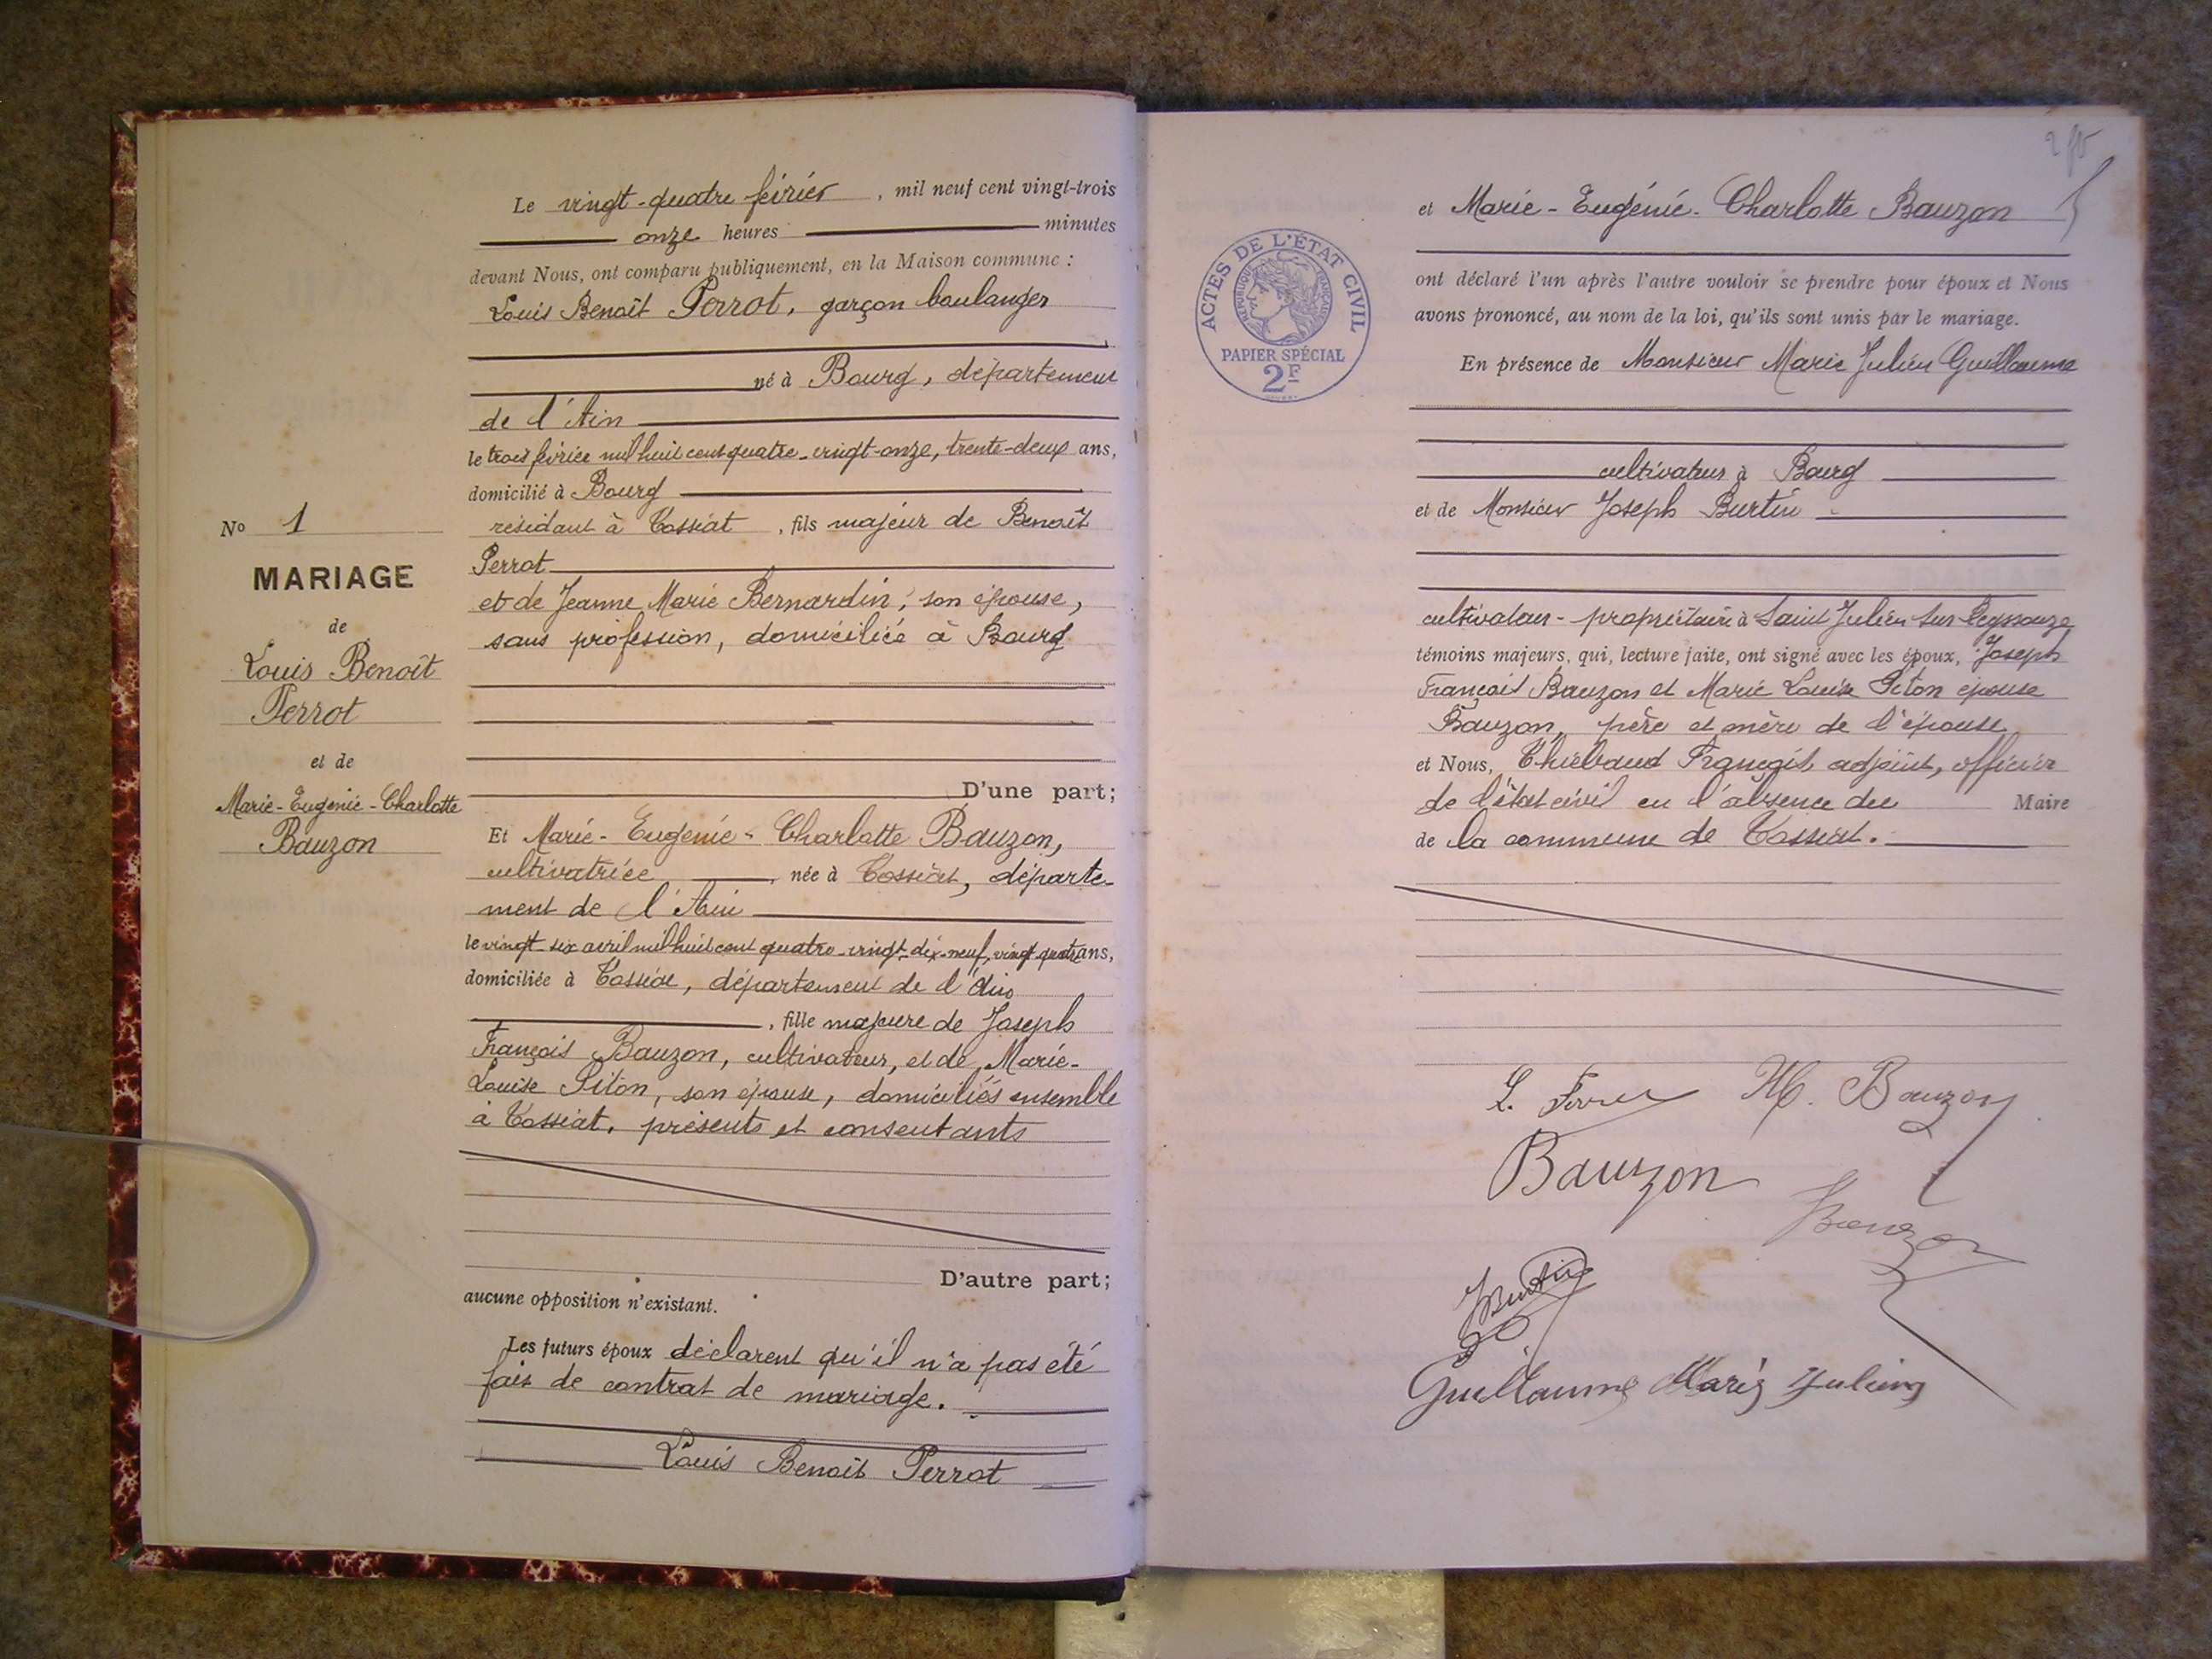 N° 1
MARIAGE
de
Louis Benoît
Perrot
et de
Marie-Eugénie-Charlotte
Bauzon
Le vingt-quatre février, mil neuf cent vingt-trois
onze heures minutes
devant Nous, ont comparu publiquement, en la Maison commune :
Louis Benoît Perrot, garçon boulanger
né à Bourg, département
de l'Ain
le trois février mil huit cent quatre-vingt-onze, trente-deux ans,
domicilié à Bourg
résidant à Tossiat, fils majeur de Benoît
Perrot
et de Jeanne Marie Bernardin, son épouse,
sans profession, domiciliée à Bourg
D'une part;
Et Marie-Eugénie-Charlotte Bauzon,
cultivatrice, née à Tossiat, départe-
ment de l'Ain
le vingt-six avril mil huit cent quatre-vingt-dix-neuf, vingt-quatre ans,
domiciliée à Tossiat, département de l'Ain
, fille majeure de Joseph
François Bauzon, cultivateur, et de Marie-
Louise Piton, son épouse, domiciliés ensemble
à Tossiat, présents et consentants
D'autre part;
aucune opposition n'existant.
Les futurs époux déclarent qu'il n'a pas été
fait de contrat de mariage.
Louis Benoît Perrot
et Marie-Eugénie-Charlotte Bauzon
ACTES DE L'ÉTAT CIVIL
RÉPUBLIQUE FRANÇAISE
PAPIER SPÉCIAL
2F
ont déclaré l'un après l'autre vouloir se prendre pour époux et Nous
avons prononcé, au nom de la loi, qu'ils sont unis par le mariage.
En présence de Monsieur Marie Julien Guillaume
cultivateur à Bourg
et de Monsieur Joseph Burtin
cultivateur-propriétaire à Saint Julien sur Reyssouze
témoins majeurs, qui, lecture faite, ont signé avec les époux, Joseph
François Bauzon et Marie Louise Piton épouse
Bauzon, père et mère de l'épouse
et Nous, Thiébaud François, adjoint, officier
de l'état civil en l'absence du Maire
de la commune de Tossiat.
L. Perrot M. Bauzon
Bauzon
Bauzon
JBurtin
Guillaume Marie Julien